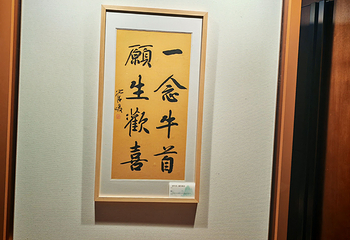 一念牛首
願生歡喜